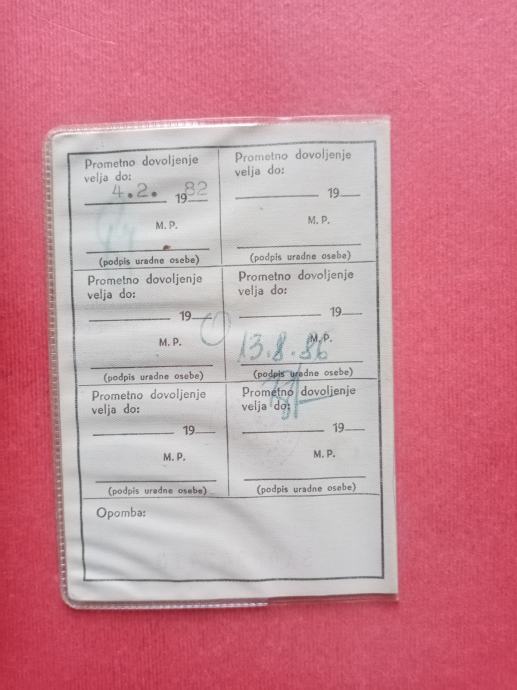 Prometno dovoljenje
velja do:
4.2. 1982
M. P.
(podpis uradne osebe)
Prometno dovoljenje
velja do:
19
M. P.
(podpis uradne osebe)
Prometno dovoljenje
velja do:
19
M. P.
(podpis uradne osebe)
Prometno dovoljenje
velja do:
19
M. P.
13.8.86
(podpis uradne osebe)
Prometno dovoljenje
velja do:
19
M. P.
(podpis uradne osebe)
Prometno dovoljenje
velja do:
19
M. P.
(podpis uradne osebe)
Opomba: